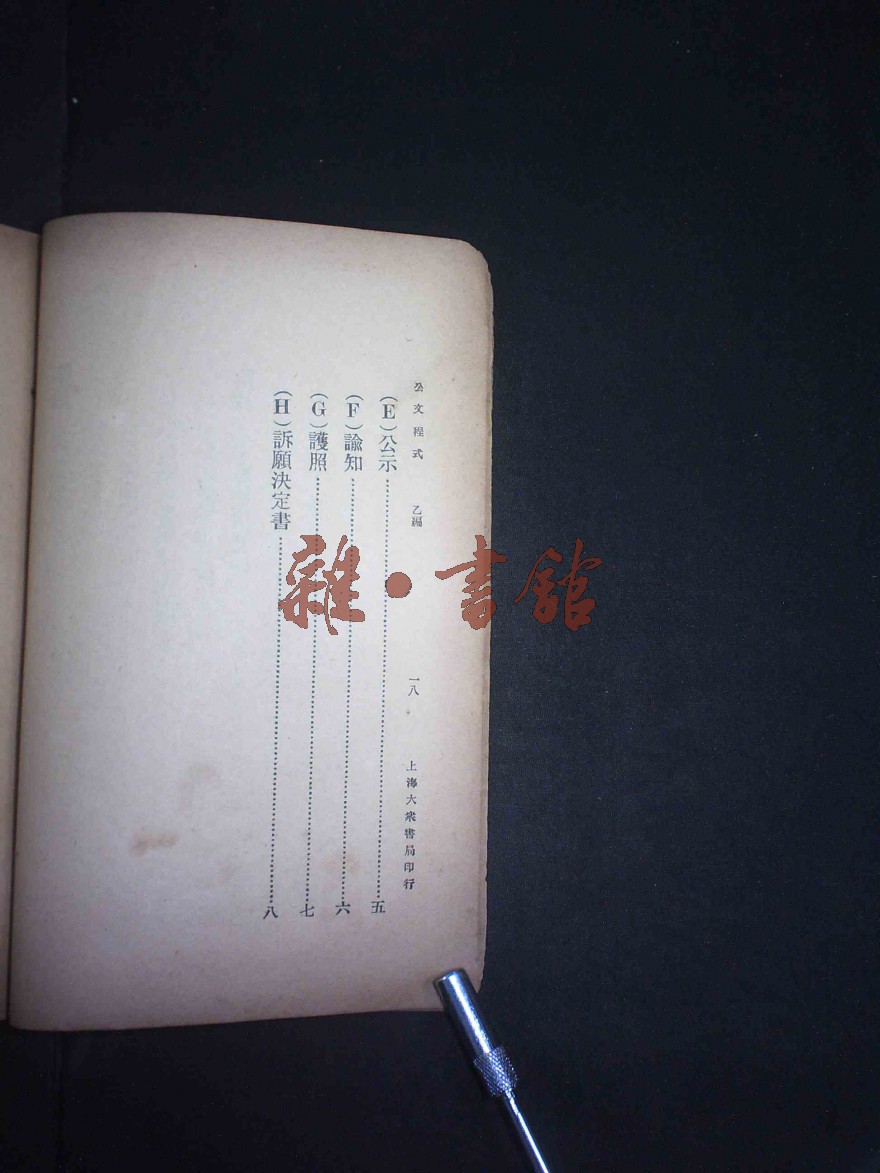 公文程式 乙編 一八 上海大衆書局印行
(E)公示……五
(F)諭知……六
(G)護照……七
(H)訴願決定書……八
雜·書館